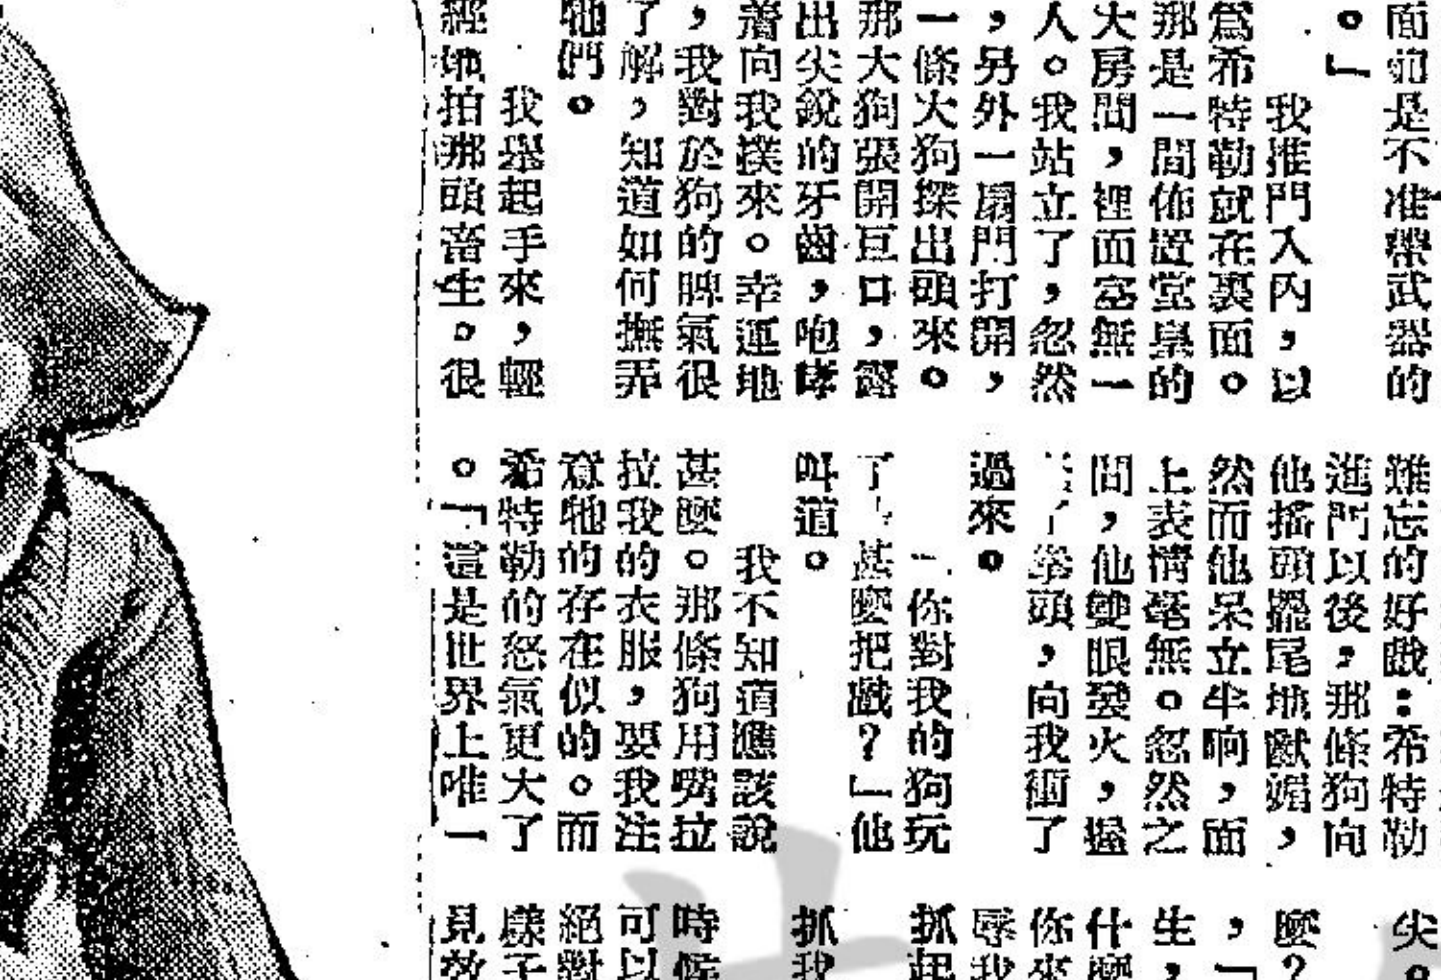 面如是不准帶武器的
。」
我推門入內，以
爲希特勒就在裏面。
那是一間佈置堂皇的
大房間，裡面空無一
人。我站立了，忽然
，另外一扇門打開，
一條大狗探出頭來。
那大狗張開巨口，露
出尖銳的牙齒，咆哮
着向我撲來。幸運地
，我對於狗的脾氣很
了解，知道如何撫弄
牠們。
我舉起手來，輕
經地拍那頭畜生。很
難忘的好戲：希特勒
進門以後，那條狗向
他搖頭擺尾地獻媚，
然而他呆立半晌，面
上表情毫無。忽然之
間，他雙眼發火，握
了拳頭，向我衝了
過來。
你對我的狗玩
了甚麼把戲？」他
叫道。
我不知道應該說
甚麼。那條狗用嘴拉
拉我的衣服，要我注
意牠的存在似的。而
希特勒的怒氣更大了
。「這是世界上唯一
尖。
麼？
，「
生，
什麼
你來
辱我
抓起
抓我
時候
可以
絕對
樣子
見效